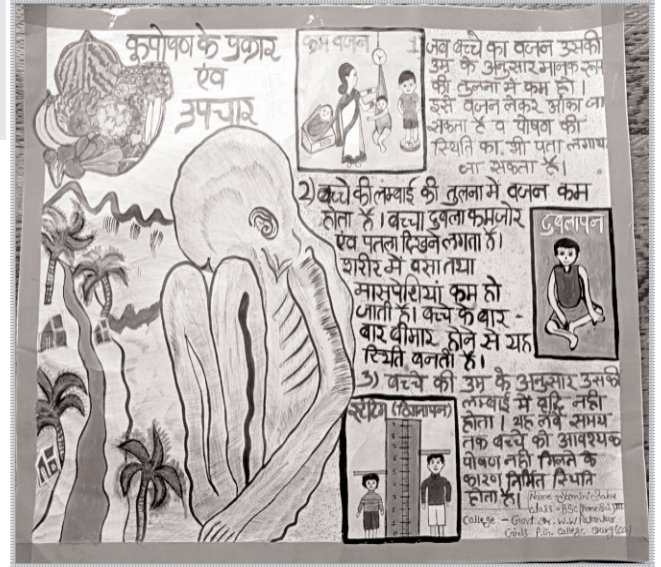 कुपोषण के प्रकार
एंव
उपचार
कम वजन
1 जब बच्चे का वजन उसकी
उम्र के अनुसार मानक स्तर
की तुलना में कम हो।
इसे वजन लेकर आंका जा
सकता है व पोषण की
स्थिति का भी पता लगाया
जा सकता है।
2) बच्चे की लम्बाई की तुलना में वजन कम
होता है। बच्चा दुबला कमजोर
एंव पतला दिखने लगता है।
शरीर में वसा तथा
मासपेशियां कम हो
जाती है। बच्चे के बार-
बार बीमार होने से यह
स्थिति बनती है।
दुबलापन
3) बच्चे की उम्र के अनुसार उसकी
लम्बाई में वृद्धि नही
होता। यह लंबे समय
तक बच्चे को आवश्यक
पोषण नही मिलने के
कारण निर्मित स्थिति
होता है।
स्टंटिंग (ठिगनापन)
Name
Class - BSC
College - Govt. Dr. W.W Patankar
Girls P.G. College Durg (CG)